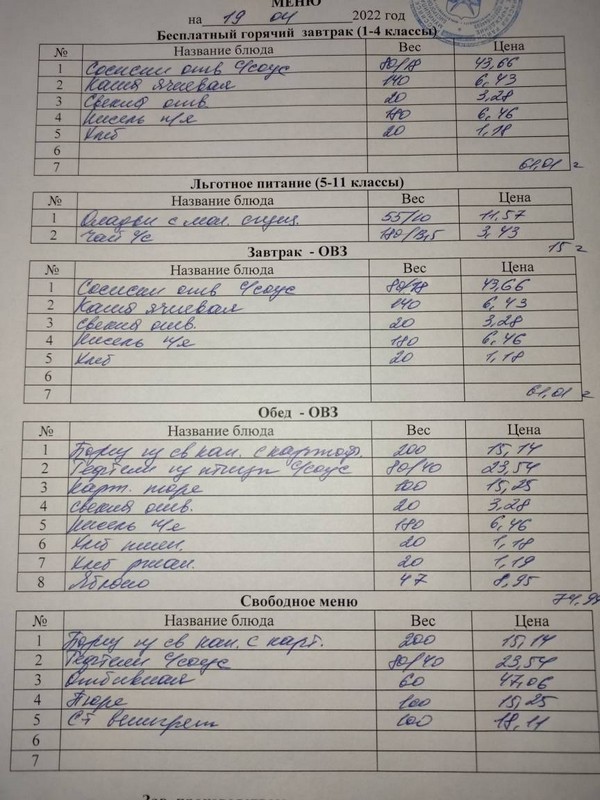 МЕНЮ
на 19 04 2022 год
Бесплатный горячий завтрак (1-4 классы)
№ Название блюда Вес Цена
1 Сосиски отв с/соус 80/78 43,66
2 Каша ячневая 140 6,43
3 Свекла отв 20 3,28
4 Кисель п/я 180 6,46
5 Хлеб 20 1,18
6
7 61,01 г
Льготное питание (5-11 классы)
№ Название блюда Вес Цена
1 Оладьи с мол. сгущ. 55/10 11,57
2 Чай б/с 180/13,5 3,43
15 г
Завтрак - ОВЗ
№ Название блюда Вес Цена
1 Сосиски отв с/соус 43,66
2 Каша ячневая 140 6,43
3 свекла отв. 20 3,28
4 Кисель 180 6,46
5 Хлеб 20 1,18
6
7 61,01 г
Обед - ОВЗ
№ Название блюда Вес Цена
1 Борщ из св кап. с картоф. 200 15,14
2 Тефтели из птицы с/соус 80/40 23,54
3 карт. пюре 100 15,25
4 свекла отв. 20 3,28
5 Кисель 180 6,46
6 Хлеб пшен. 20 1,18
7 Хлеб ржан. 20 1,19
8 Яблоко 47 8,95
74,99
Свободное меню
№ Название блюда Вес Цена
1 Борщ из св кап. с карт. 200 15,14
2 Тефтели с/соус 80/40 23,54
3 Отбивная 60 47,06
4 Пюре 100 15,25
5 СТ винегрет 100 18,11
6
7